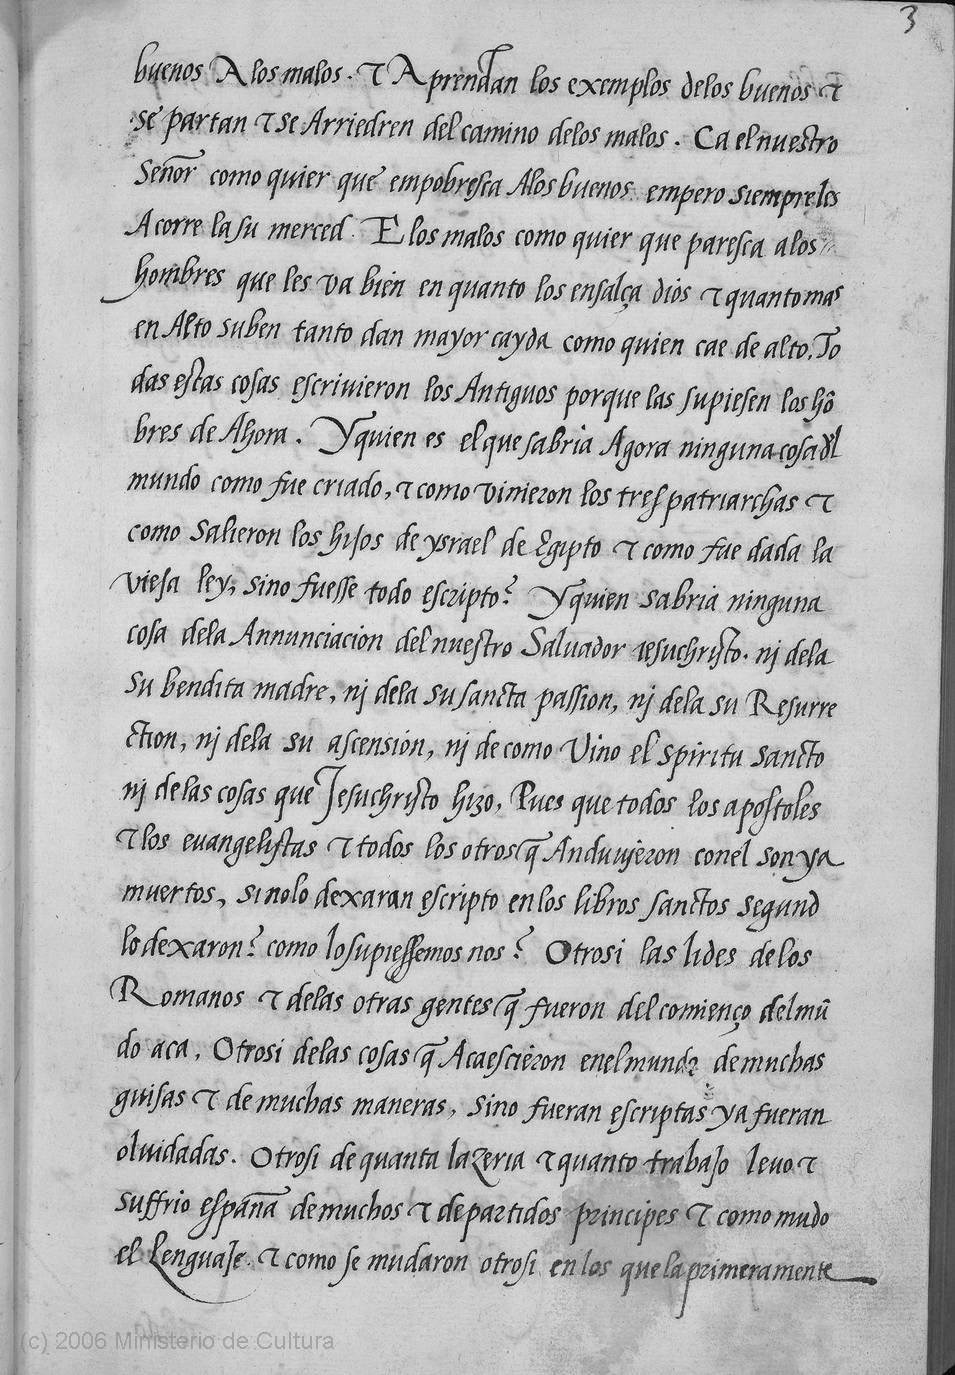 3
buenos A los malos. τ Aprendan los exemplos delos buenos τ
se partan τ se Arriedren del camino delos malos. Ca el nuestro
señor como quier que empobresca Alos buenos empero siempreles
Acorre la su merced. E los malos como quier que paresca a los
hombres que les va bien en quanto los ensalça dios τ quanto mas
en Alto suben tanto dan mayor cayda como quien cae de alto. To
das estas cosas escrivieron los Antiguos porque las supiesen los hõ
bres de Ahora. Yquien es el que sabria Agora ninguna cosa dl
mundo como fue criado, τ como vinieron los tres patriarchas τ
como salieron los hijos de ysrael de Egipto τ como fue dada la
vieja ley, sino fuesse todo escripto? Yquien sabria ninguna
cosa dela Annunciacion del nuestro Salvador iesuchristo. nj dela
su bendita madre, nj dela su sancta passion, nj dela su Resurre
ction, nj dela su ascension, nj de como Vino el spiritu sancto
nj de las cosas que Jesuchristo hizo, Pues que todos los apostoles
τ los evangelistas τ todos los otros q̃ Anduvjeron conel son ya
muertos, sinolo dexaran escripto en los libros sanctos segund
lo dexaron? como lo supiessemos nos? Otrosi las lides de los
Romanos τ delas otras gentes q̃ fueron del comienço del mũ
do aca, Otrosi delas cosas q̃ Acaescieron enel mundo de muchas
guisas τ de muchas maneras, sino fueran escriptas ya fueran
olvidadas. Otrosi de quanta lazeria τ quanto trabajo levo τ
suffrio españa de muchos τ departidos principes τ como mudo
el Lenguaje. τ como se mudaron otrosi en los que la primeramente
(c) 2006 Ministerio de Cultura